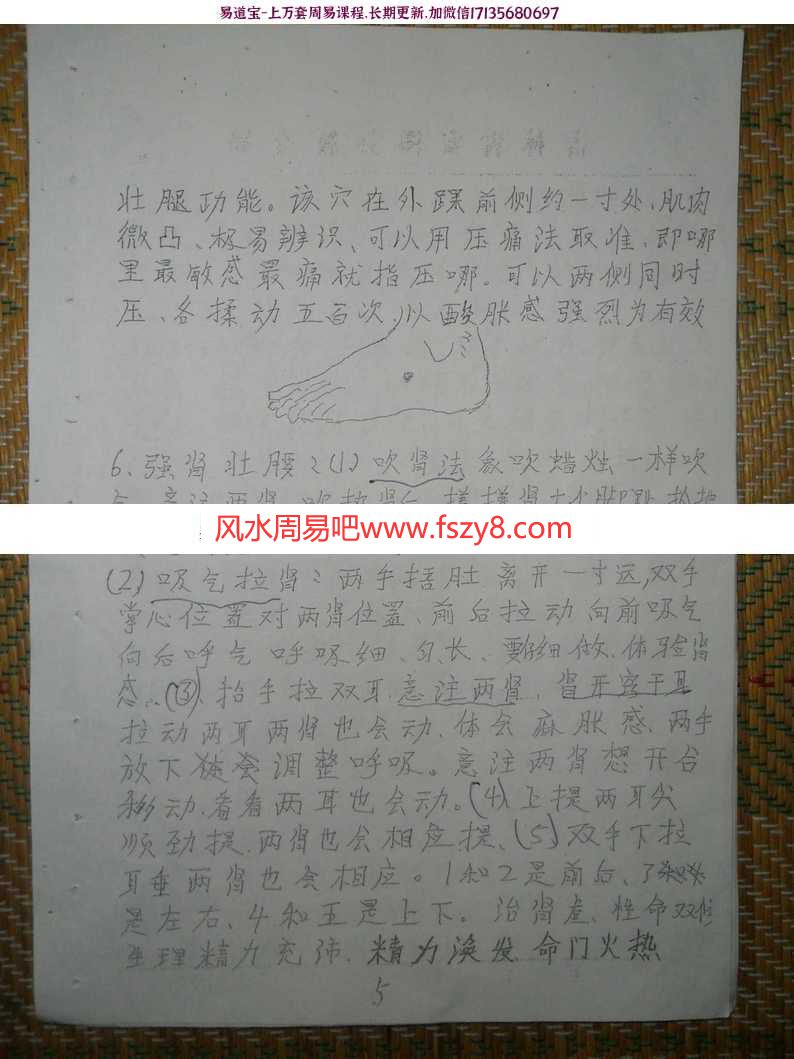 易道宝-上万套周易课程.长期更新.加微信17135680697
壮腿功能。该穴在外踝前侧约一寸处、肌肉
微凸、极易辨识、可以用压痛法取准、即哪
里最敏感最痛就指压哪。可以两侧同时
压、各揉动五百次、以酸胀感强烈为有效
6、强肾壮腰:(1)吹肾法象吹蜡烛一样吹
风水周易吧www.fszy8.com
(2)吸气拉肾:两手括肚离开一寸远,双手
掌心位置对两肾位置、前后拉动向前吸气
向后呼气呼吸细、匀、长、细做、体验肾
感。(3)、抬手拉双耳、意注两肾、肾开窍于耳
拉动两耳两肾也会动、体会麻胀感、两手
放下 调整呼吸。意注两肾想开合
移动、看看两耳也会动。(4)上提两耳尖
顺劲提、两肾也会相应提、(5)双手下拉
耳垂两肾也会相应。1和2是前后、3
是左右、4和五是上下。治肾虚、性命双修
生理精力充沛、精力涣发、命门火热
5